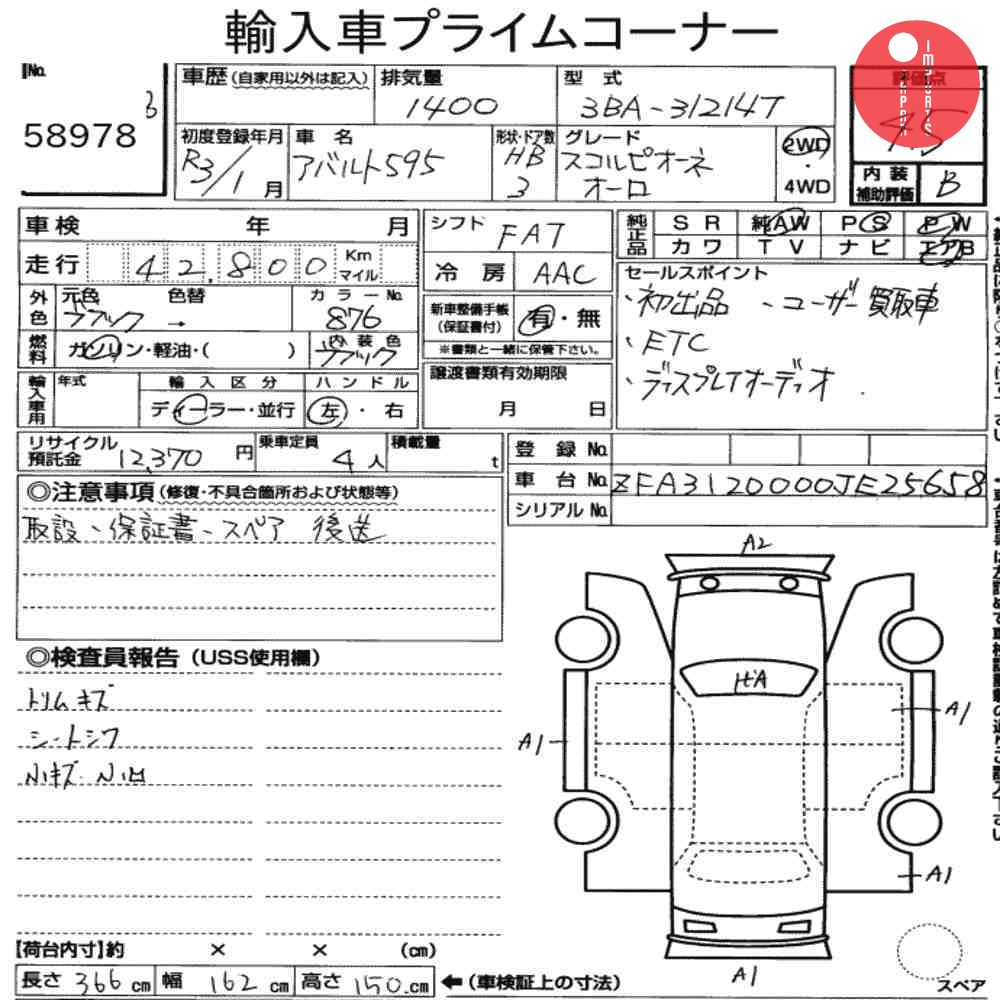 輸入車プライムコーナー
No. 58978
3
車歴(自家用以外は記入)
排気量 1400
型式 3BA-312147
評価点 4.5
IMPORTS JAPAN
初度登録年月 R3/1月
車名 アバルト595
形状・ドア数 HB 3
グレード スコルピオーネ オーロ
2WD・4WD
内装補助評価 B
車検 年 月
シフト FAT
純正品 SR 純AW PS PW
カワ TV ナビ エアB
走行 42,800 Km マイル
冷房 AAC
セールスポイント
・初出品 ・ユーザー買取車
・ETC
・ディスプレイオーディオ
外色 元色 ブラック → 色替 カラーNo. 876
新車整備手帳(保証書付) 有・無
※書類と一緒に保管下さい。
燃料 ガソリン・軽油・( ) 内装色 ブラック
輸入車用 年式 輸入区分 ディーラー・並行 ハンドル 左・右
譲渡書類有効期限 月 日
リサイクル預託金 12,370円
乗車定員 4人
積載量 t
登録No.
車台No. ZFA3120000JE25658
シリアルNo.
◎注意事項(修復・不具合箇所および状態等)
取説、保証書、スペア 後送
◎検査員報告(USS使用欄)
トリムキズ
シートシワ
小キズ 小凹
A2
A1
A1
A1
A1
【荷台内寸】約 × × (cm)
長さ 366 cm 幅 162 cm 高さ 150.cm ←(車検証上の寸法)
スペア